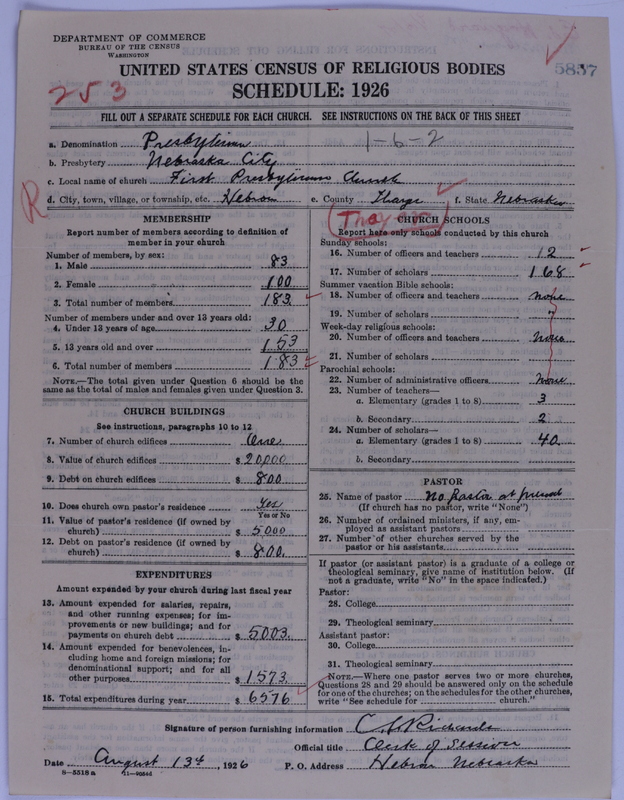 DEPARTMENT OF COMMERCE
BUREAU OF THE CENSUS
WASHINGTON
UNITED STATES CENSUS OF RELIGIOUS BODIES
SCHEDULE: 1926
5837
253
FILL OUT A SEPARATE SCHEDULE FOR EACH CHURCH. SEE INSTRUCTIONS ON THE BACK OF THIS SHEET
a. Denomination Presbyterian 1-6-2
b. Presbytery Nebraska City
c. Local name of church First Presbyterian Church
R
d. City, town, village, or township, etc. Hebron e. County Thayer f. State Nebraska
MEMBERSHIP
Report number of members according to definition of
member in your church
Number of members, by sex:
1. Male 83
2. Female 100
3. Total number of members 183
Number of members under and over 13 years old:
4. Under 13 years of age 30
5. 13 years old and over 153
6. Total number of members 183
NOTE.—The total given under Question 6 should be the
same as the total of males and females given under Question 3.
CHURCH BUILDINGS
See instructions, paragraphs 10 to 12
7. Number of church edifices One
8. Value of church edifices $ 20,000
9. Debt on church edifices $ 800
10. Does church own pastor's residence Yes
Yes or No
11. Value of pastor's residence (if owned by
church) $ 5000
12. Debt on pastor's residence (if owned by
church) $ 800.
EXPENDITURES
Amount expended by your church during last fiscal year
13. Amount expended for salaries, repairs,
and other running expenses; for im-
provements or new buildings; and for
payments on church debt $ 5003.
14. Amount expended for benevolences, in-
cluding home and foreign missions; for
denominational support; and for all
other purposes $ 1573.
15. Total expenditures during year $ 6576
CHURCH SCHOOLS
Report here only schools conducted by this church
Sunday schools:
16. Number of officers and teachers 12
17. Number of scholars 168
Summer vacation Bible schools:
18. Number of officers and teachers none
19. Number of scholars "
Week-day religious schools:
20. Number of officers and teachers None
21. Number of scholars
Parochial schools:
22. Number of administrative officers none
23. Number of teachers—
a. Elementary (grades 1 to 8) 3
b. Secondary 2
24. Number of scholars—
a. Elementary (grades 1 to 8) 40
b. Secondary
PASTOR
25. Name of pastor No pastor at present
(If church has no pastor, write "None")
26. Number of ordained ministers, if any, em-
ployed as assistant pastors
27. Number of other churches served by the
pastor or his assistants
If pastor (or assistant pastor) is a graduate of a college or
theological seminary, give name of institution below. (If
not a graduate, write "No" in the space indicated.)
Pastor:
28. College
29. Theological seminary
Assistant pastor:
30. College
31. Theological seminary
NOTE.—Where one pastor serves two or more churches,
Questions 28 and 29 should be answered only on the schedule
for one of the churches; on the schedules for the other churches,
write "See schedule for church."
Signature of person furnishing information C. S. Richards
Official title Clerk of Session
Date August 13th, 1926 P. O. Address Hebron Nebraska
8-5518a 11-90845